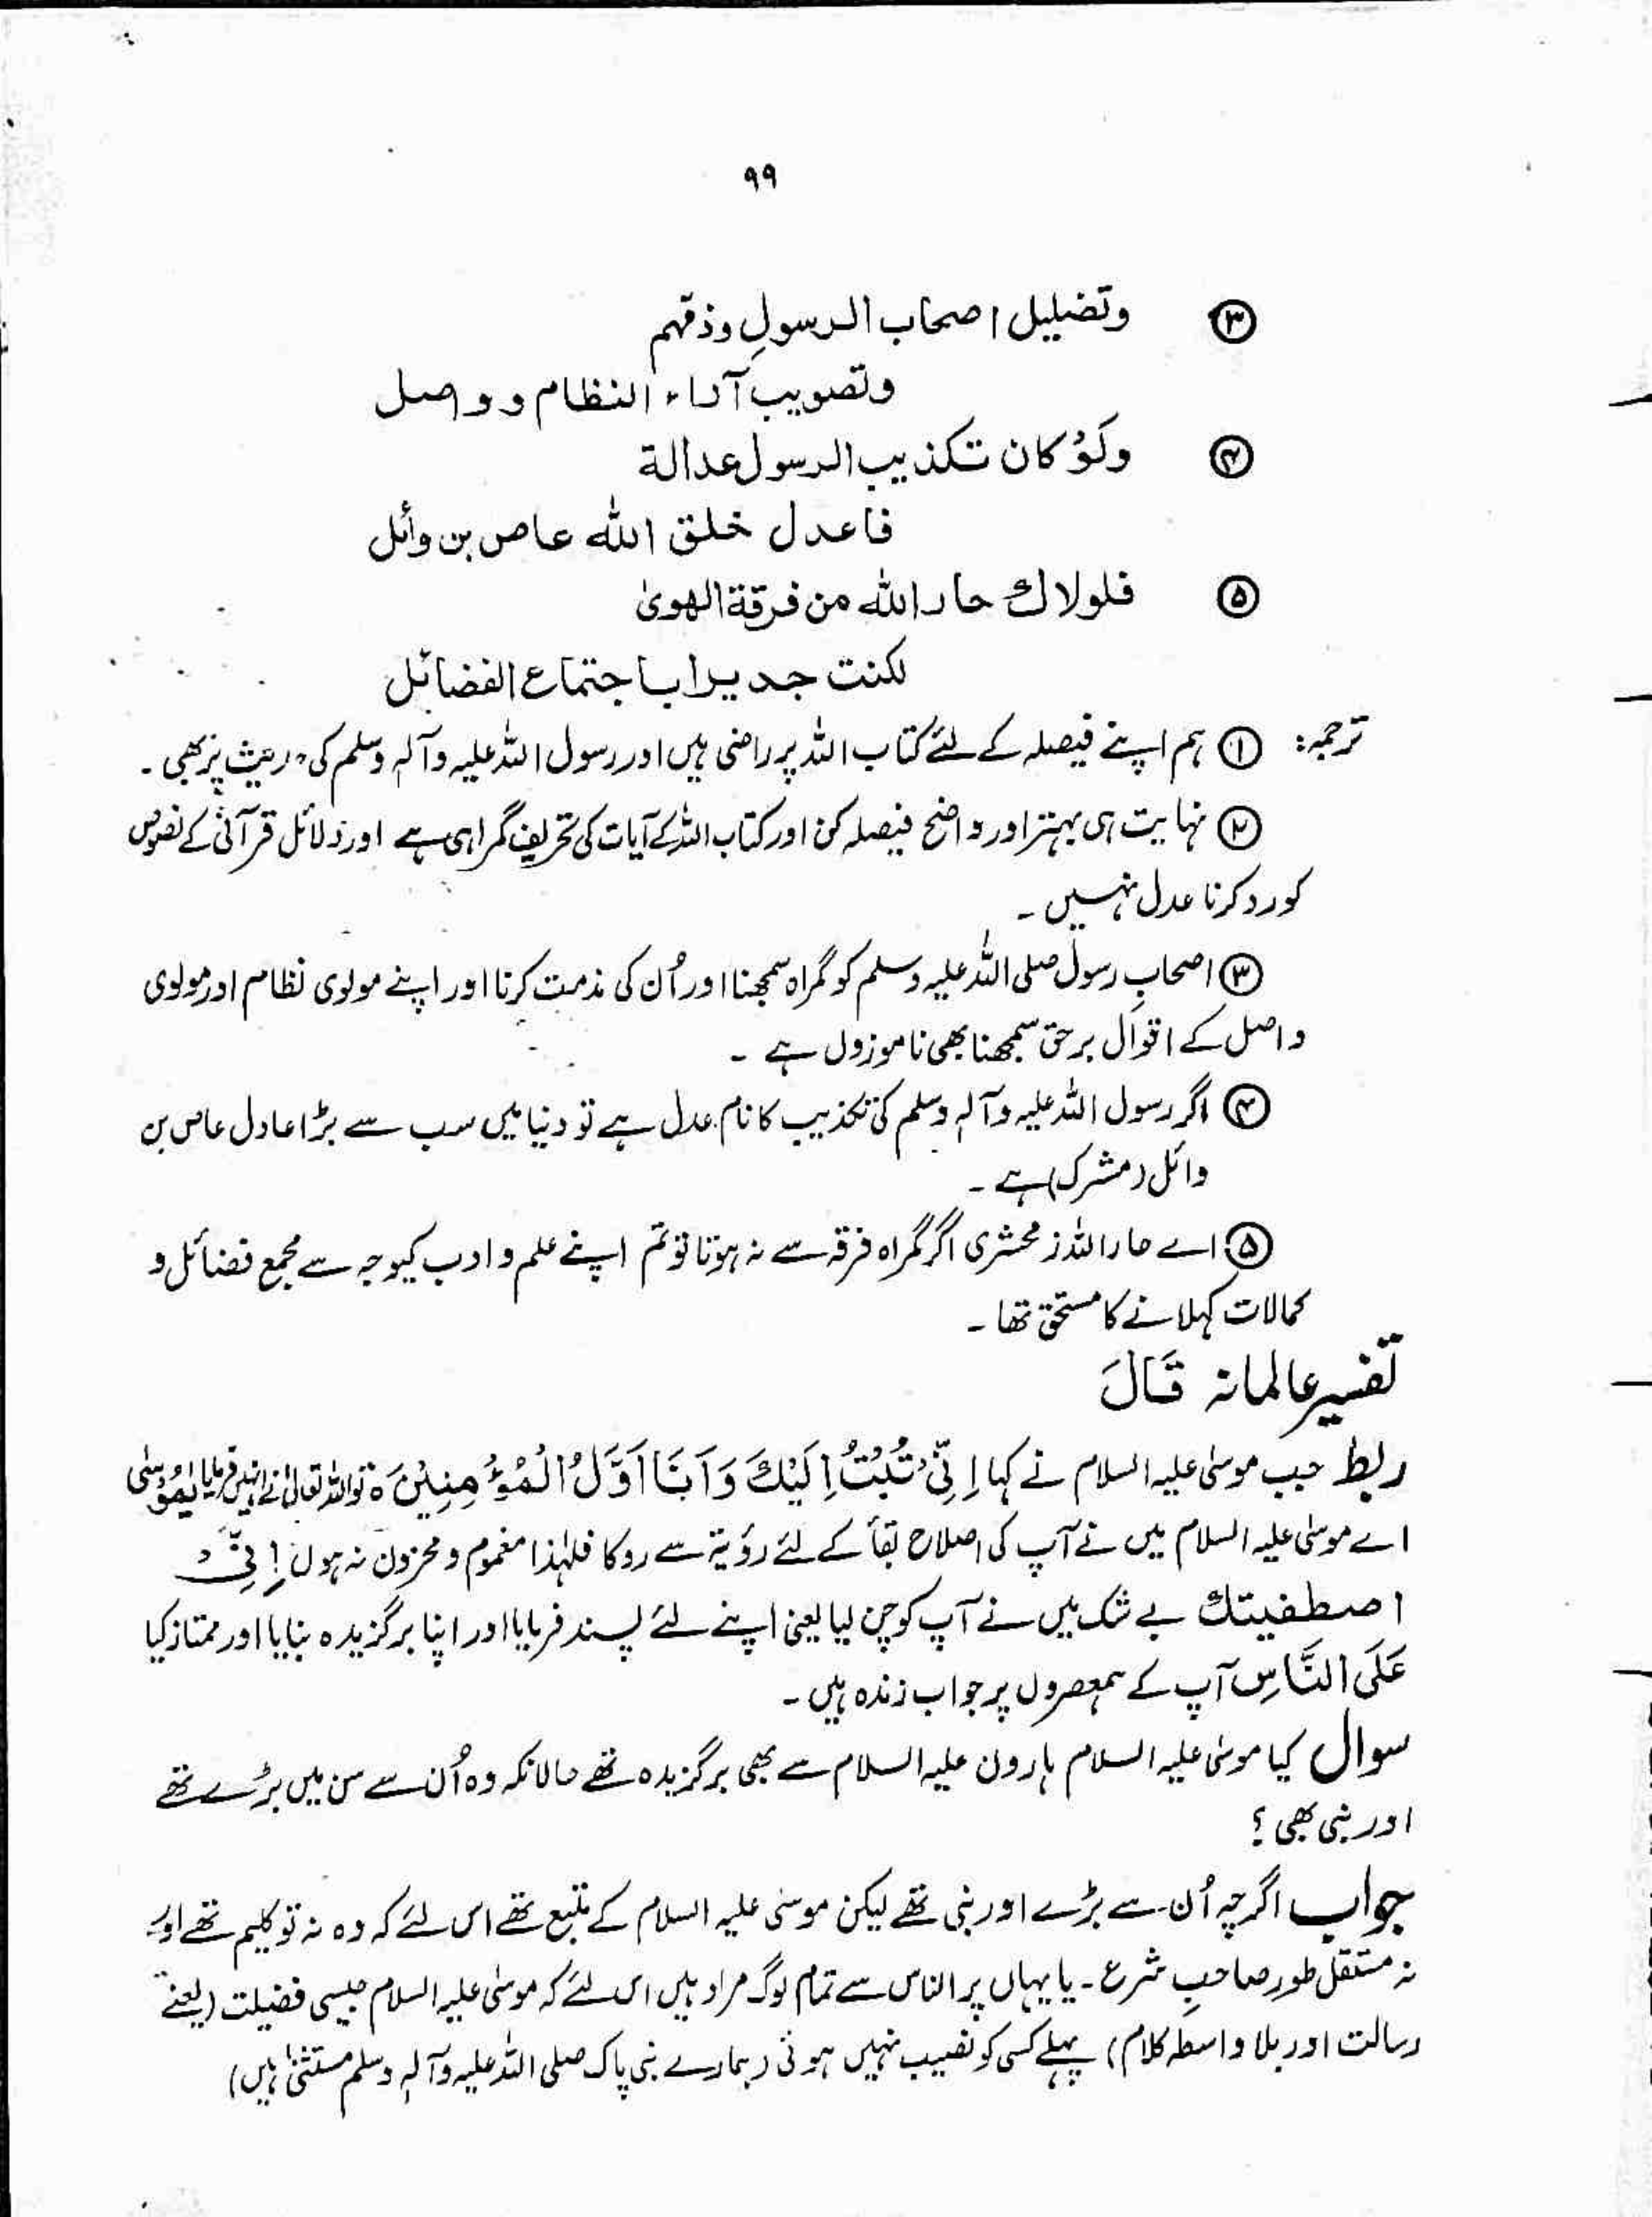 ۹۹
③ وتضلیل اصحاب الرسولِ وذمّہم
وتصویب آراء النظام و واصل
④ ولَوْ کان تکذیب الرسول عدالة
فاعدل خلق اللّٰه عاص بن وائل
⑤ فلولاك جار اللّٰه من فرقة الہویٰ
لکنت جدیرا باجتماع الفضائل
ترجمہ: ① ہم اپنے فیصلہ کے لئے کتاب اللہ پر راضی ہیں اور رسول اللہ علیہ وآلہٖ وسلم کی حدیث پر بھی ۔
② نہایت ہی بہتر اور واضح فیصلہ کن اور کتاب اللہ کے آیات کی تحریف گمراہی ہے اور دلائل قرآنی کے نصوص
کو رد کرنا عدل نہیں ۔
③ اصحابِ رسول صلی اللہ علیہ وسلم کو گمراہ سمجھنا اور اُن کی مذمت کرنا اور اپنے مولوی نظام اور مولوی
واصل کے اقوال برحق سمجھنا بھی ناموزوں ہے ۔
④ اگر رسول اللہ علیہ وآلہٖ وسلم کی تکذیب کا نام عدل ہے تو دنیا میں سب سے بڑا عادل عاص بن
وائل (مشرک) ہے ۔
⑤ اے جار اللہ زمحشری اگر گمراہ فرقہ سے نہ ہوتا تو تم اپنے علم و ادب کیوجہ سے مجمع فضائل و
کمالات کہلانے کا مستحق تھا ۔
تفسیر عالمانہ قَالَ
ربط جب موسٰی علیہ السلام نے کہا اِنِّیْ تُبْتُ اِلَیْكَ وَاَنَا اَوَّلُ الْمُؤْمِنِیْنَ ہ تو اللہ تعالیٰ نے انہیں فرمایا یٰمُوْسٰی
اے موسٰی علیہ السلام میں نے آپ کی اصلاح بقاً کے لئے رؤیۃ سے روکا فلہٰذا مغموم و محزون نہ ہوں اِنِّیْ
اصطفیتك بے شک میں نے آپ کو چن لیا یعنی اپنے لئے پسند فرمایا اور اپنا برگزیدہ بنایا اور ممتاز کیا
عَلَی النَّاسِ آپ کے ہمعصروں پر جو اب زندہ ہیں ۔
سوال کیا موسٰی علیہ السلام ہارون علیہ السلام سے بھی برگزیدہ تھے حالانکہ وہ اُن سے سن میں بڑے تھے
اور نبی بھی ؟
جواب اگرچہ اُن سے بڑے اور نبی تھے لیکن موسٰی علیہ السلام کے متبع تھے اس لئے کہ وہ نہ تو کلیم تھے اور
نہ مستقل طور صاحبِ شرع ۔ یا یہاں پر الناس سے تمام لوگ مراد ہیں اس لئے کہ موسٰی علیہ السلام جیسی فضیلت (یعنے
رسالت اور بلا واسطہ کلام) پہلے کسی کو نصیب نہیں ہوئی (ہمارے نبی پاک صلی اللہ علیہ وآلہٖ وسلم مستثنیٰ ہیں)